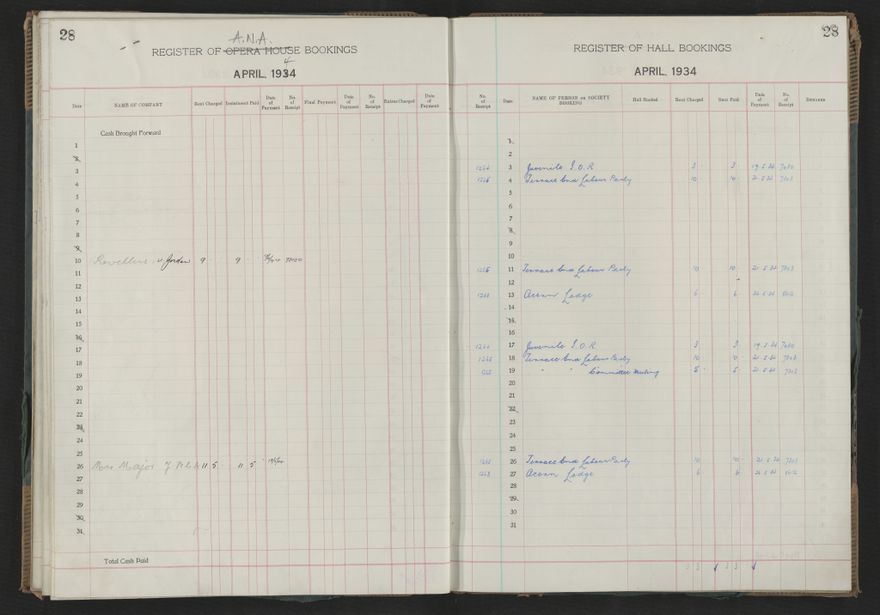 28
A.N.A.
REGISTER OF OPERA HOUSE BOOKINGS
4
APRIL, 1934
Date
NAME OF COMPANY
Rent Charged
Instalment Paid
Date of Payment
No. of Receipt
Final Payment
Date of Payment
No. of Receipt
Extras Charged
Date of Payment
Cash Brought Forward
1
2
3
4
5
6
7
8
9
10 v. Jordan 9 9
11
12
13
14
15
16
17
18
19
20
21
22
23
24
25
26 Mrs Major 11 5 11 5
27
28
29
30
31
Total Cash Paid
28
REGISTER OF HALL BOOKINGS
APRIL, 1934
No. of Receipt
Date
NAME OF PERSON OR SOCIETY BOOKING
Hall Booked
Rent Charged
Rent Paid
Date of Payment
No. of Receipt
REMARKS
1
2
3 Juvenile I.O.R 3 3 19.5.34
4 Terrace End Labour Party 10 10 21.5.34
5
6
7
8
9
10
11 Terrace End Labour Party 10 10 21.5.34
12
13 Acorn Lodge 6 6
14
15
16
17 Juvenile I.O.R 3 3 19.5.34
18 Terrace End Labour Party 10 10 21.5.34
19 " " Committee Meeting 5 5 21.5.34
20
21
22
23
24
25
26 Terrace End Labour Party 10 10 21.5.34
27 Acorn Lodge 6 6
28
29
30
31